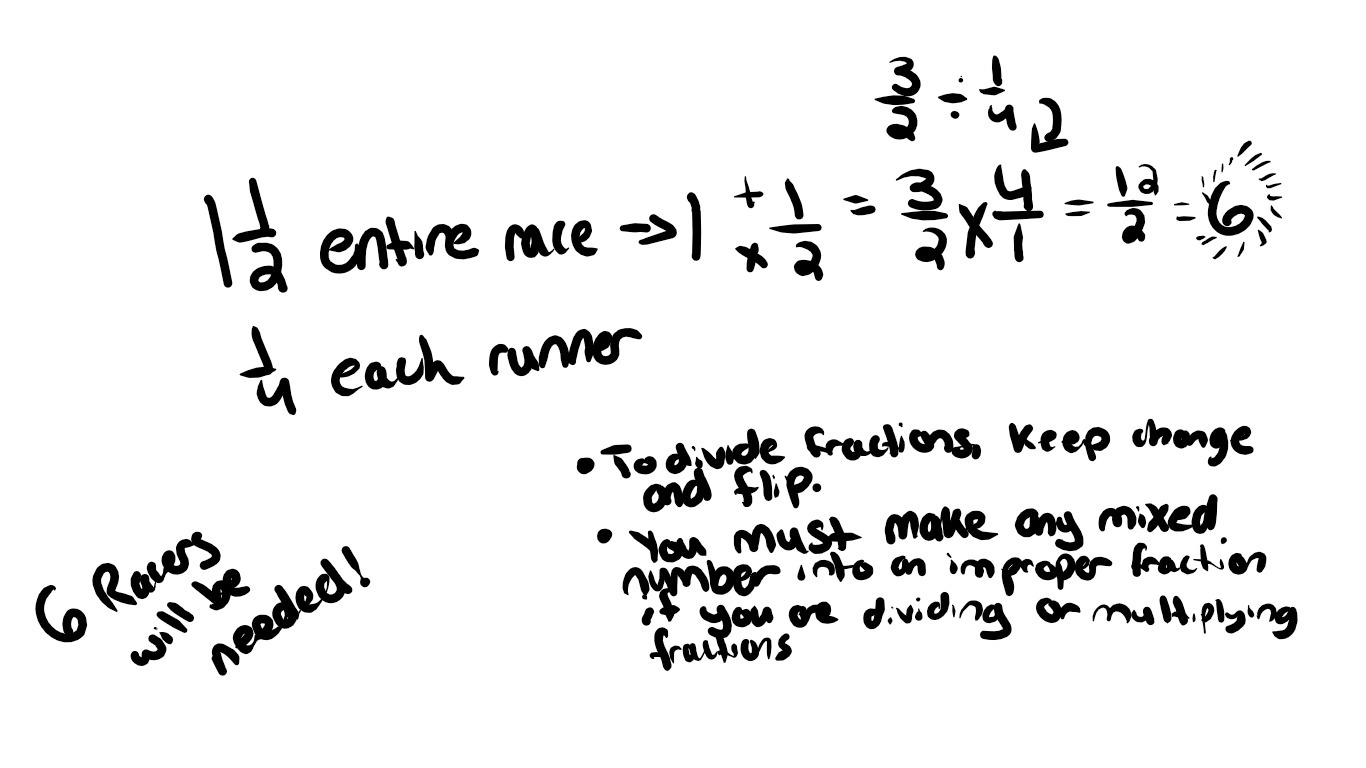 3/2 ÷ 1/4
1 1/2 entire race → 1 + x 1/2 = 3/2 x 4/1 = 12/2 = 6
1/4 each runner
• To divide fractions, keep change
and flip.
• You must make any mixed
number into an improper fraction
if you are dividing or multiplying
fractions
6 Racers
will be
needed!